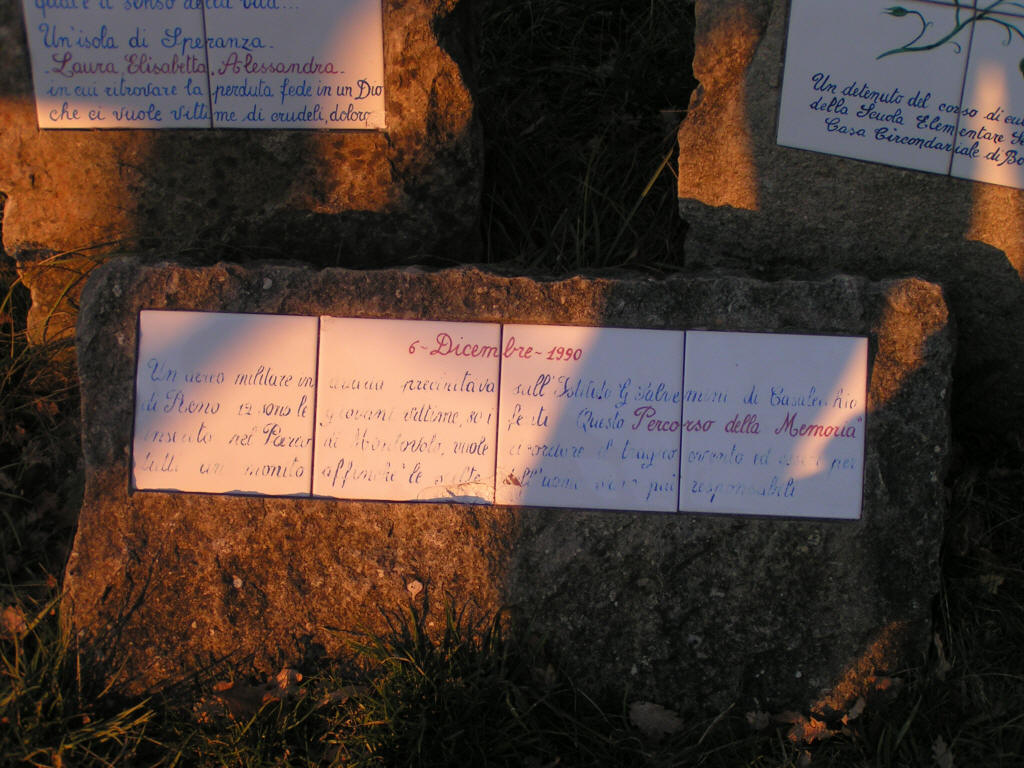 quale il senso della vita...
Un'isola di Speranza
Laura Elisabetta, Alessandra
in cui ritrovare la perduta fede in un Dio
che ci vuole vittime di crudeli, doloro
Un detenuto del corso di
della Scuola Elementare
Casa Circondariale di Bo
6-Dicembre-1990
Un aereo militare in avaria precipitava sull'Istituto G. Salvemini di Casalecchio
di Reno 12 sono le giovani vittime, 
feriti Questo "Percorso della Memoria"
inserito nel Parco di Montovolo, vuole ricordare il tragico evento ed essere per
tutti un monito affinché le scelte dell'uomo siano più responsabili